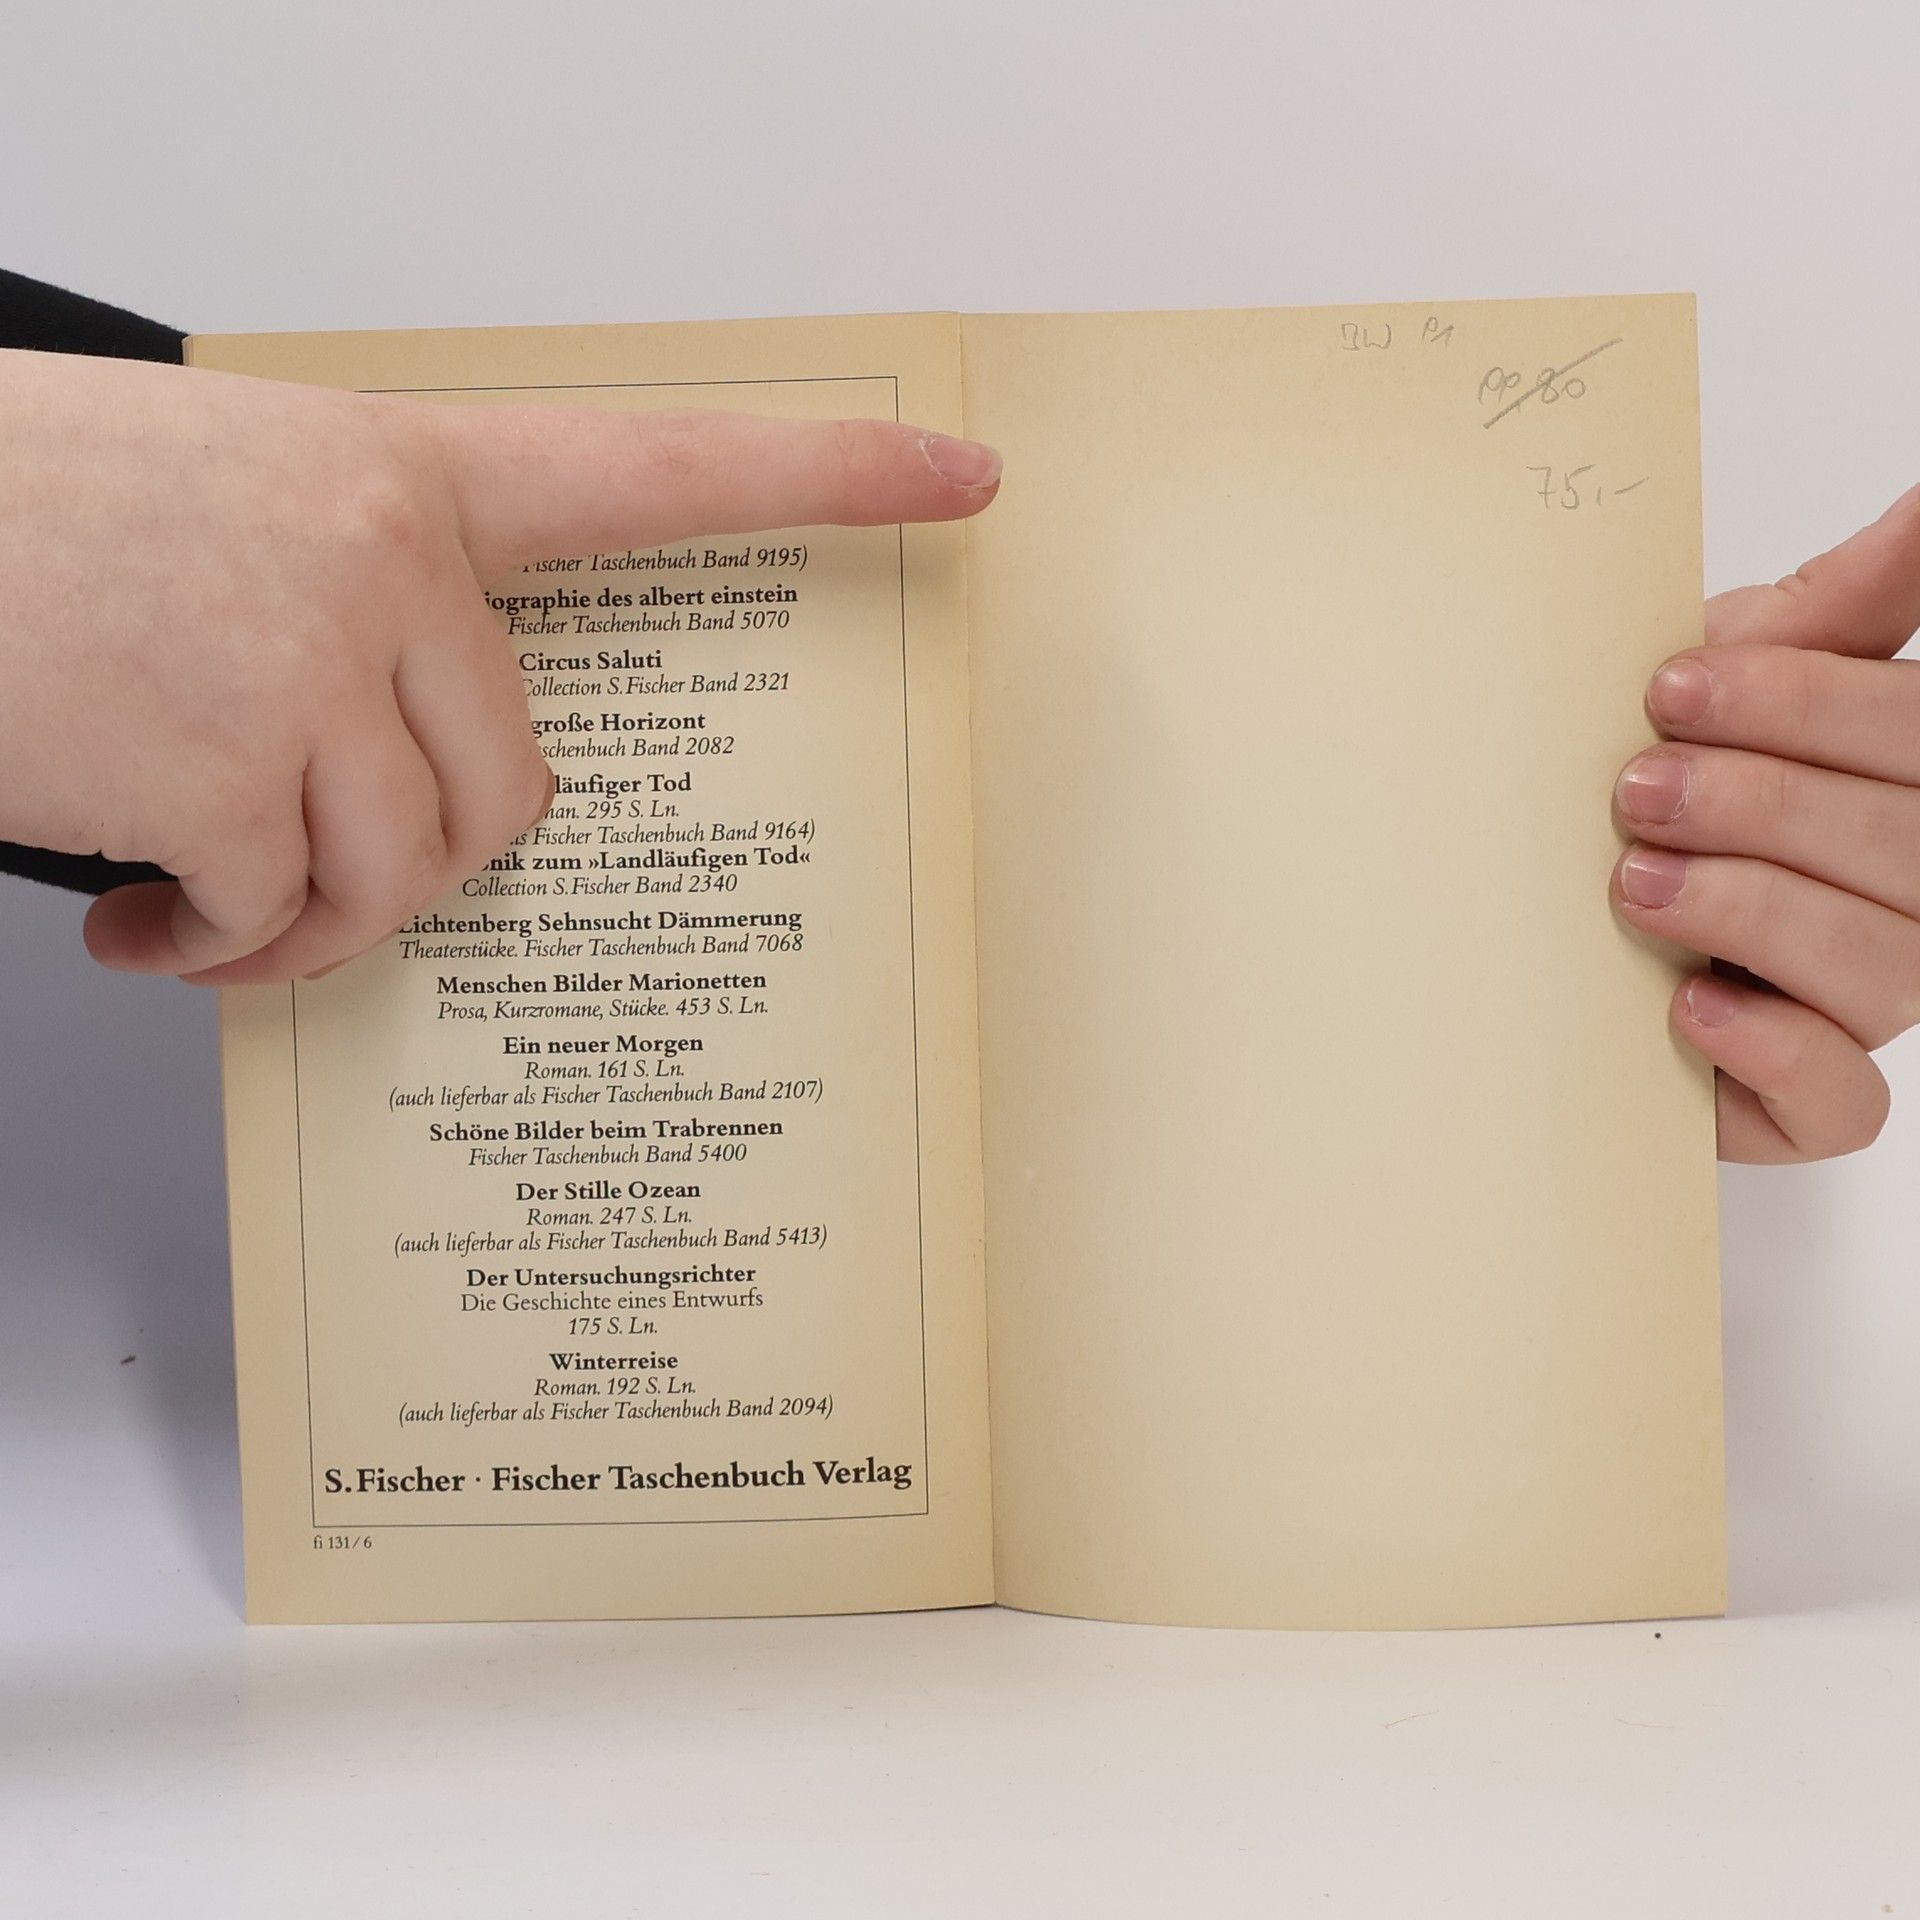 Fischer Taschenbuch Band 9195)
iographie des albert einstein
Fischer Taschenbuch Band 5070
Circus Saluti
Collection S. Fischer Band 2321
große Horizont
schenbuch Band 2082
läufiger Tod
man. 295 S. Ln.
ls Fischer Taschenbuch Band 9164)
nik zum »Landläufigen Tod«
Collection S. Fischer Band 2340
Lichtenberg Sehnsucht Dämmerung
Theaterstücke. Fischer Taschenbuch Band 7068
Menschen Bilder Marionetten
Prosa, Kurzromane, Stücke. 453 S. Ln.
Ein neuer Morgen
Roman. 161 S. Ln.
(auch lieferbar als Fischer Taschenbuch Band 2107)
Schöne Bilder beim Trabrennen
Fischer Taschenbuch Band 5400
Der Stille Ozean
Roman. 247 S. Ln.
(auch lieferbar als Fischer Taschenbuch Band 5413)
Der Untersuchungsrichter
Die Geschichte eines Entwurfs
175 S. Ln.
Winterreise
Roman. 192 S. Ln.
(auch lieferbar als Fischer Taschenbuch Band 2094)
S. Fischer · Fischer Taschenbuch Verlag
fi 131/6
75,-